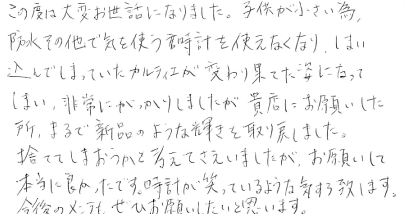 この度は大変お世話になりました。子供が小さい為、
防水その他で気を使う時計を使えなくなり、しまい
込んでしまっていたカルティエが変わり果てた姿になって
しまい、非常にがっかりしましたが貴店にお願いした
所、まるで新品のような輝きを取り戻しました。
捨ててしまおうかと考えてさえいましたが、お願いして
本当に良かったです。時計が笑っているような気する致します。
今後のメンテも、ぜひお願いしたいと思います。